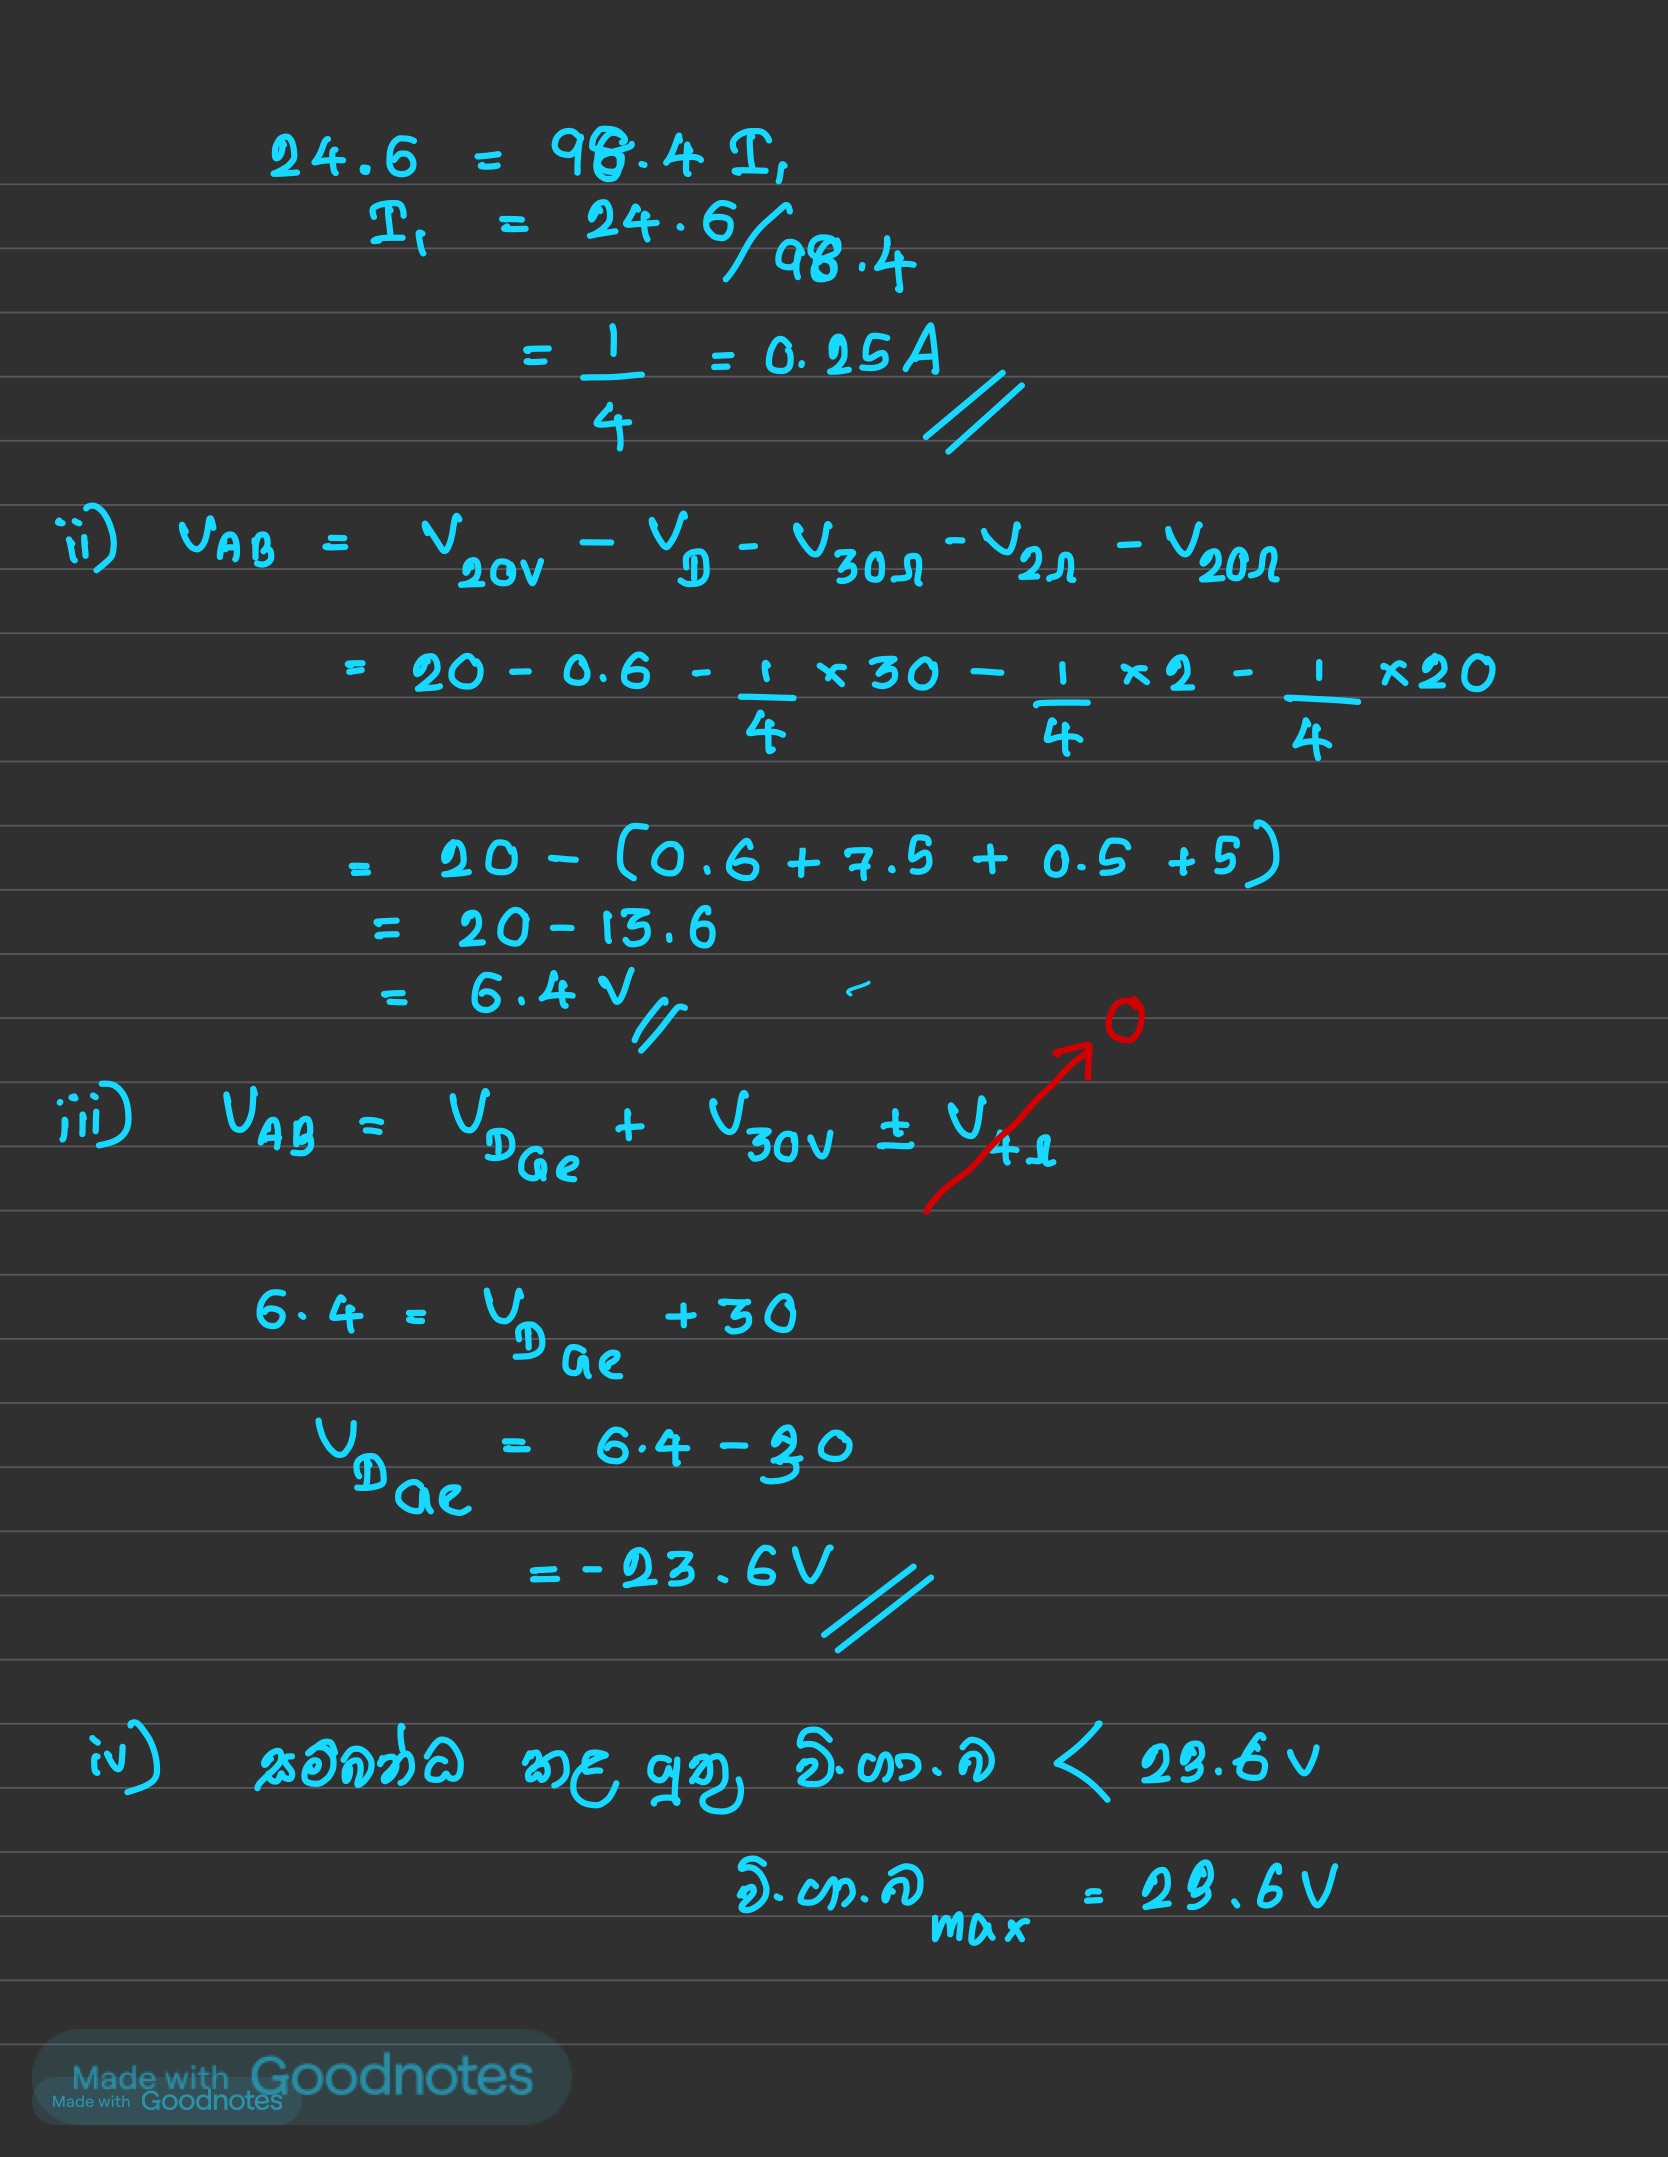 24.6 = 98.4 I₁
I₁ = 24.6/98.4
= 1/4 = 0.25A
ii) V_AB = V_20V - V_D - V_30Ω - V_2Ω - V_20Ω
= 20 - 0.6 - 1/4 × 30 - 1/4 × 2 - 1/4 × 20
= 20 - (0.6 + 7.5 + 0.5 + 5)
= 20 - 13.6
= 6.4 V
0
iii) V_AB = V_D_Ge + V_30V ± V_4Ω
6.4 = V_D_Ge + 30
V_D_Ge = 6.4 - 30
= - 23.6 V
iv) සම්බන්ධ කළ යුතු වි.ගා.බ < 23.6 V
වි.ගා.බ max = 23.6 V
Made with Goodnotes
Made with Goodnotes